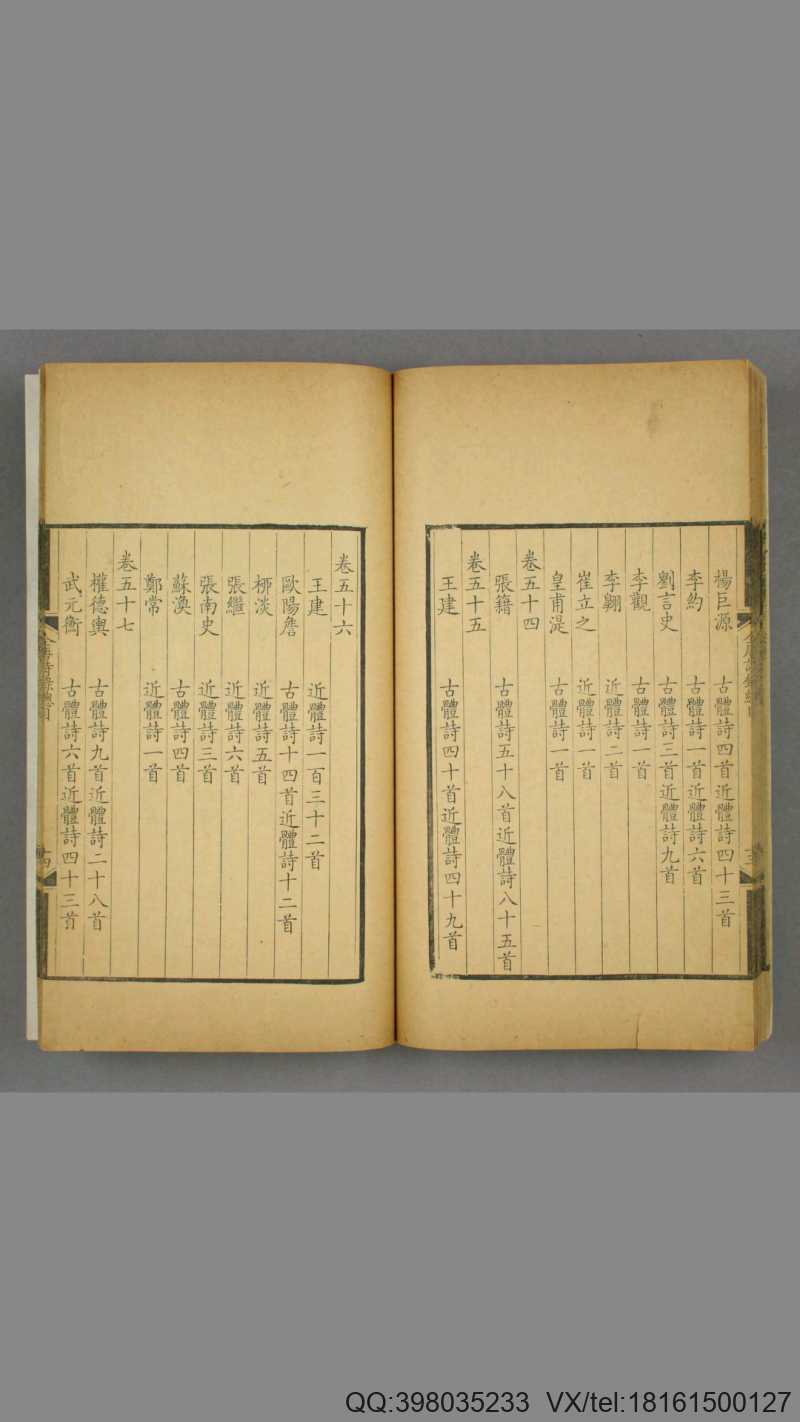 楊巨源 古體詩四首近體詩四十三首
李約 古體詩一首近體詩六首
劉言史 古體詩三首近體詩九首
李觀 古體詩一首
李翱 近體詩二首
崔立之 近體詩一首
皇甫湜 古體詩一首
卷五十四
張籍 古體詩五十八首近體詩八十五首
卷五十五
王建 古體詩四十首近體詩四十九首
卷五十六
王建 近體詩一百三十二首
歐陽詹 古體詩十四首近體詩十二首
柳淡 近體詩五首
張繼 近體詩六首
張南史 近體詩三首
蘇渙 古體詩四首
鄭常 近體詩一首
卷五十七
權德輿 古體詩九首近體詩二十八首
武元衡 古體詩六首近體詩四十三首
QQ:398035233 VX/tel:18161500127